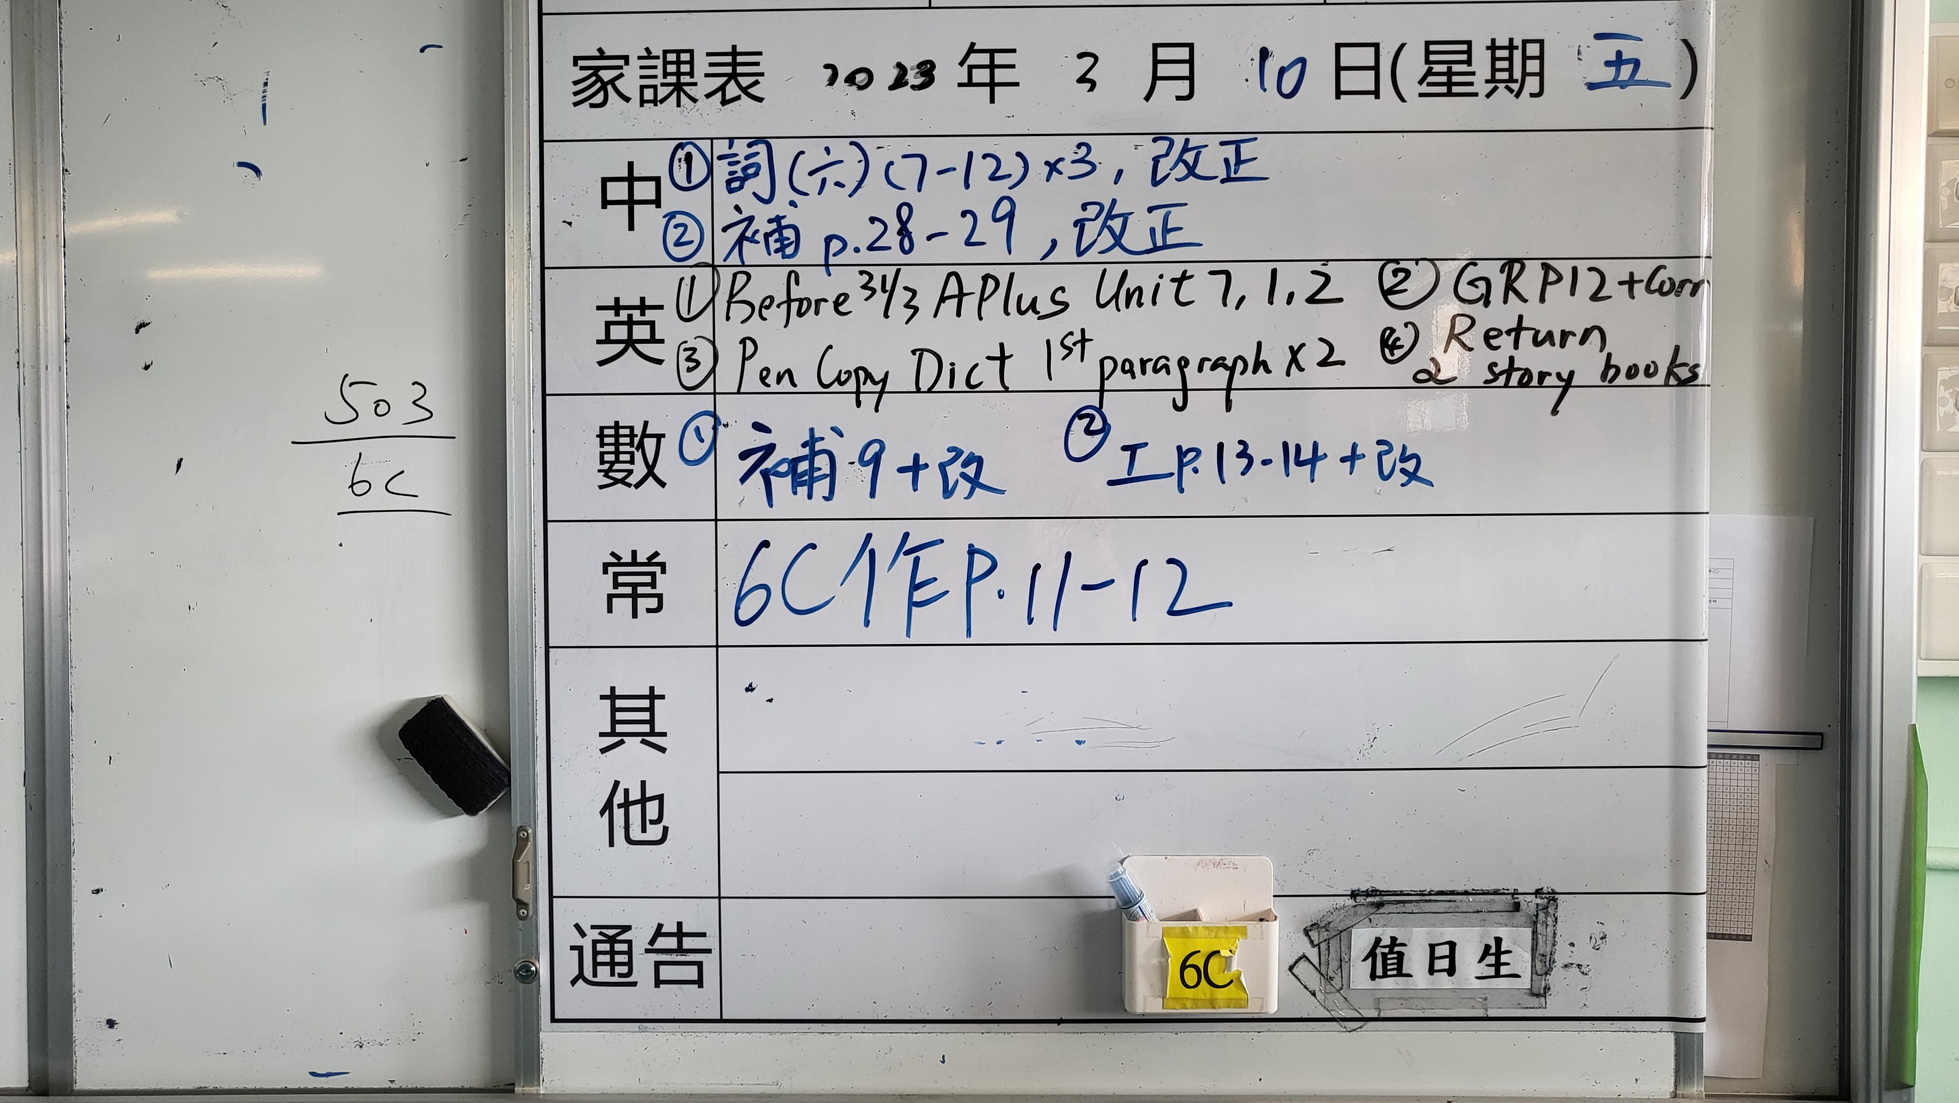 家課表 2023 年 3 月 10 日(星期 五)
中 ① 詞(六)(7-12)×3, 改正
② 補 p.28-29, 改正
英 ① Before 31/3 APlus Unit 7, 1, 2 ② GRP12+Corr
③ Pen Copy Dict 1st paragraph X2 ④ Return 2 story books
數 ① 補 9+改 ② 工p.13-14+改
常 6C作P.11-12
其他
通告
503
6C
6C
值日生